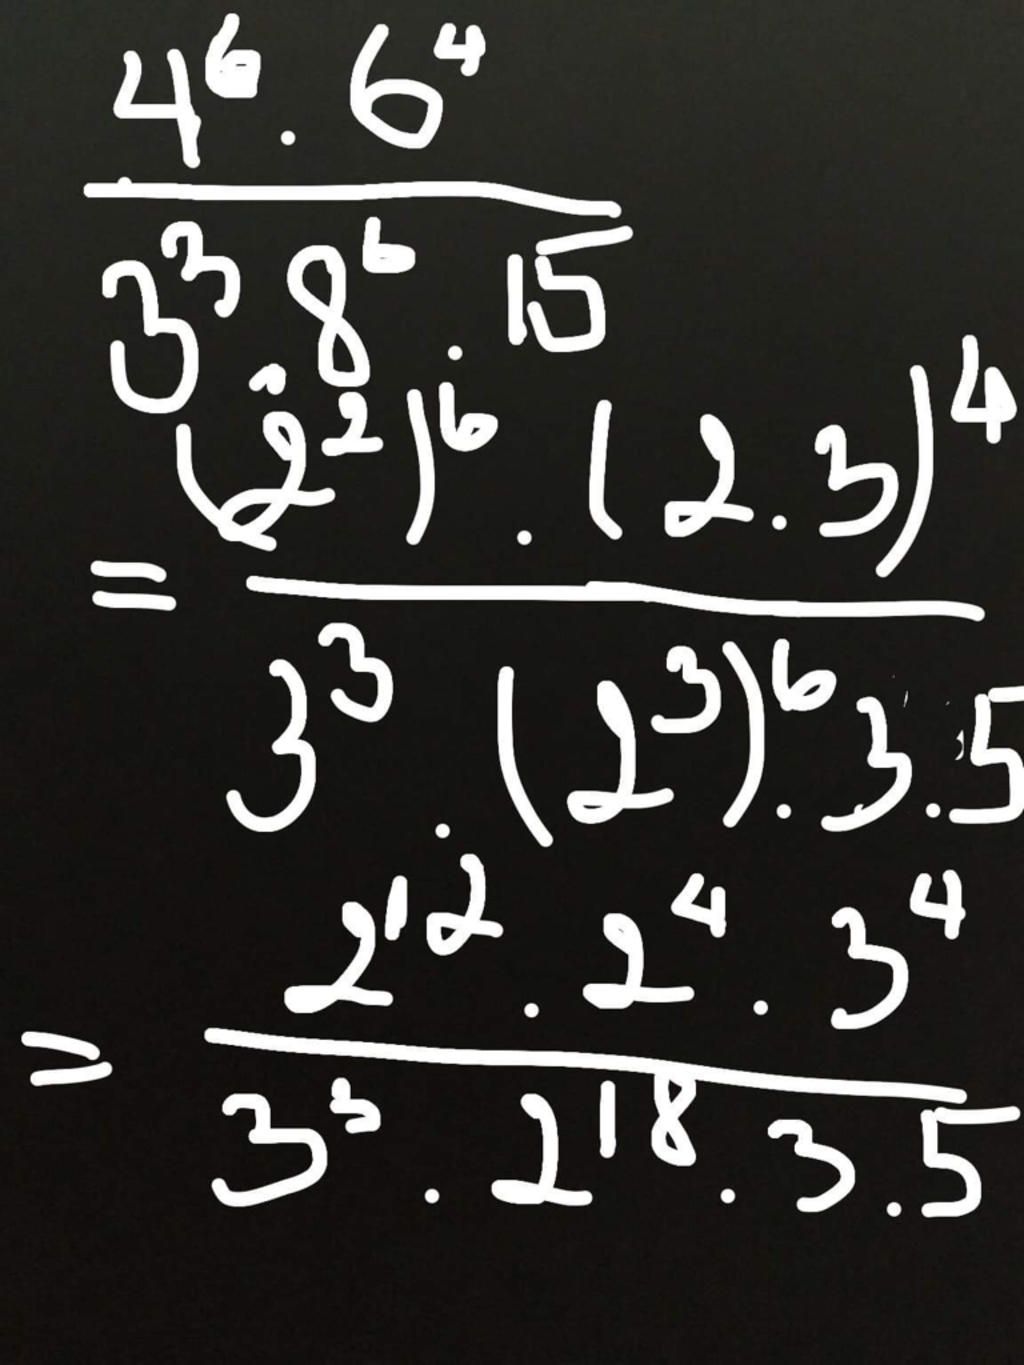 4⁶ . 6⁴
3³ 8⁶ . 15
= (2²)⁶ . (2.3)⁴
3³ . (2³)⁶ . 3 . 5
= 2¹² . 2⁴ . 3⁴
3³ . 2¹⁸ . 3 . 5